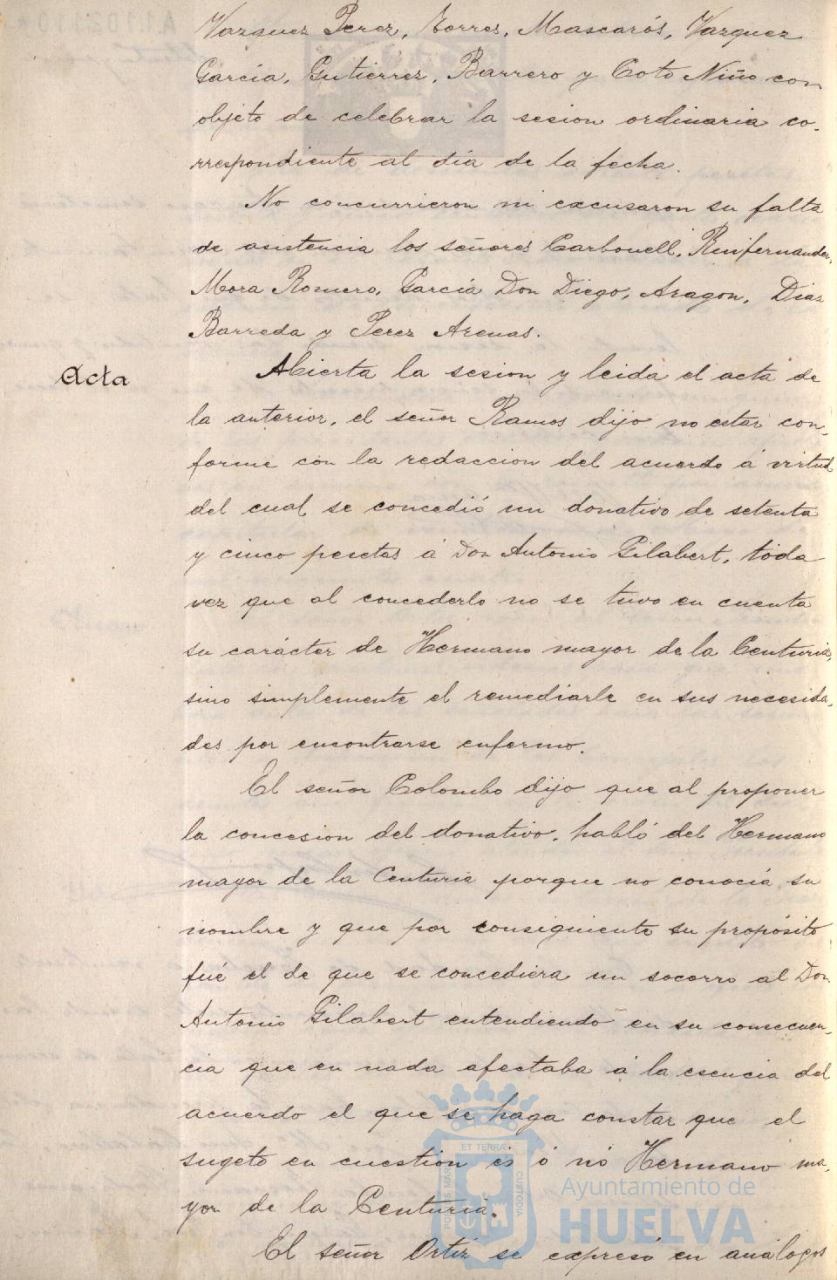 Vazquez Perez, Torres, Mascarós, Vazquez
García, Gutierrez, Barrero y Coto Niño con
objeto de celebrar la sesion ordinaria co-
rrespondiente al dia de la fecha.
No concurrieron ni excusaron su falta
de asistencia los señores Carbonell, Ruifernandez,
Mora Romero, García Don Diego, Aragon, Diaz
Barreda y Perez Arenas.
Acta
Abierta la sesion y leida el acta de
la anterior, el señor Ramos dijo no estar con-
forme con la redaccion del acuerdo á virtud
del cual se concedió un donativo de setenta
y cinco pesetas á Don Antonio Gilabert, toda
vez que al concederlo no se tuvo en cuenta
su carácter de Hermano mayor de la Centuria,
sino simplemente el remediarle en sus necesida-
des por encontrarse enfermo.
El señor Colombo dijo que al proponer
la concesion del donativo, habló del Hermano
mayor de la Centuria porque no conocia su
nombre y que por consiguiente su propósito
fué el de que se concediera un socorro al Don
Antonio Gilabert entendiendo en su consecuen-
cia que en nada afectaba á la esencia del
acuerdo el que se haga constar que el
sugeto en cuestion és ó nó Hermano ma-
yor de la Centuria.
El señor Ortiz se expresó en análogos
ET TERRA
CUSTODIA
Ayuntamiento de
HUELVA